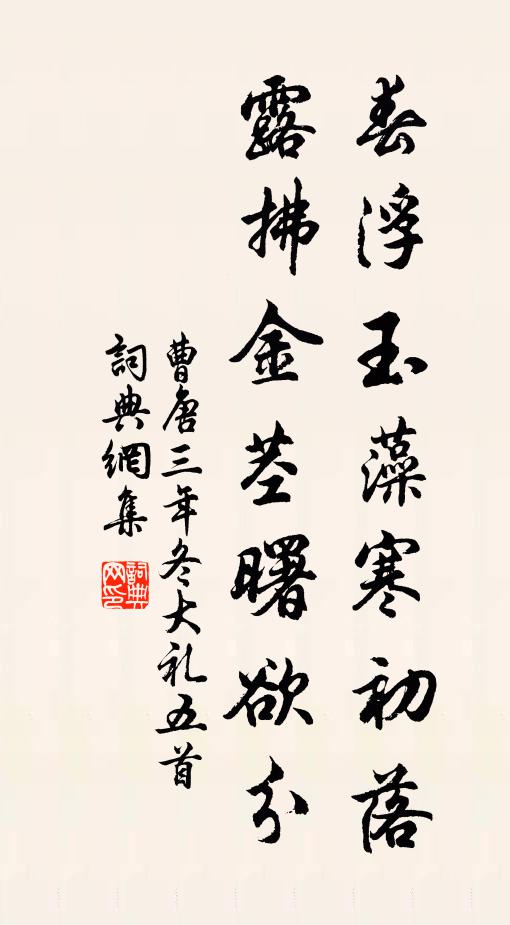 春浮玉藻寒初落
露拂金茎曙欲分
曹唐三年冬大礼五首
詞典網集
詞典網印